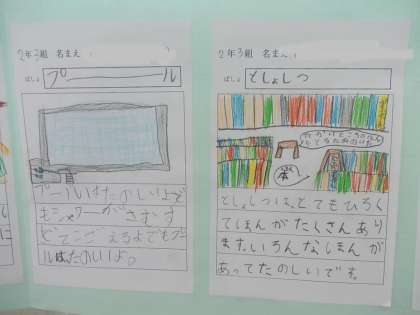 2年3組 名まえ
ばしょ プール
プールはたのしいよで
もシャワーがさむす
ぎてこごえるよでもプー
ルはたのしいよ。
2年3組 名まえ
ばしょ としょしつ
としょしつは、とてもひろく
てほんがたくさんあり
ます。いろんなほんが
あってたのしいです。